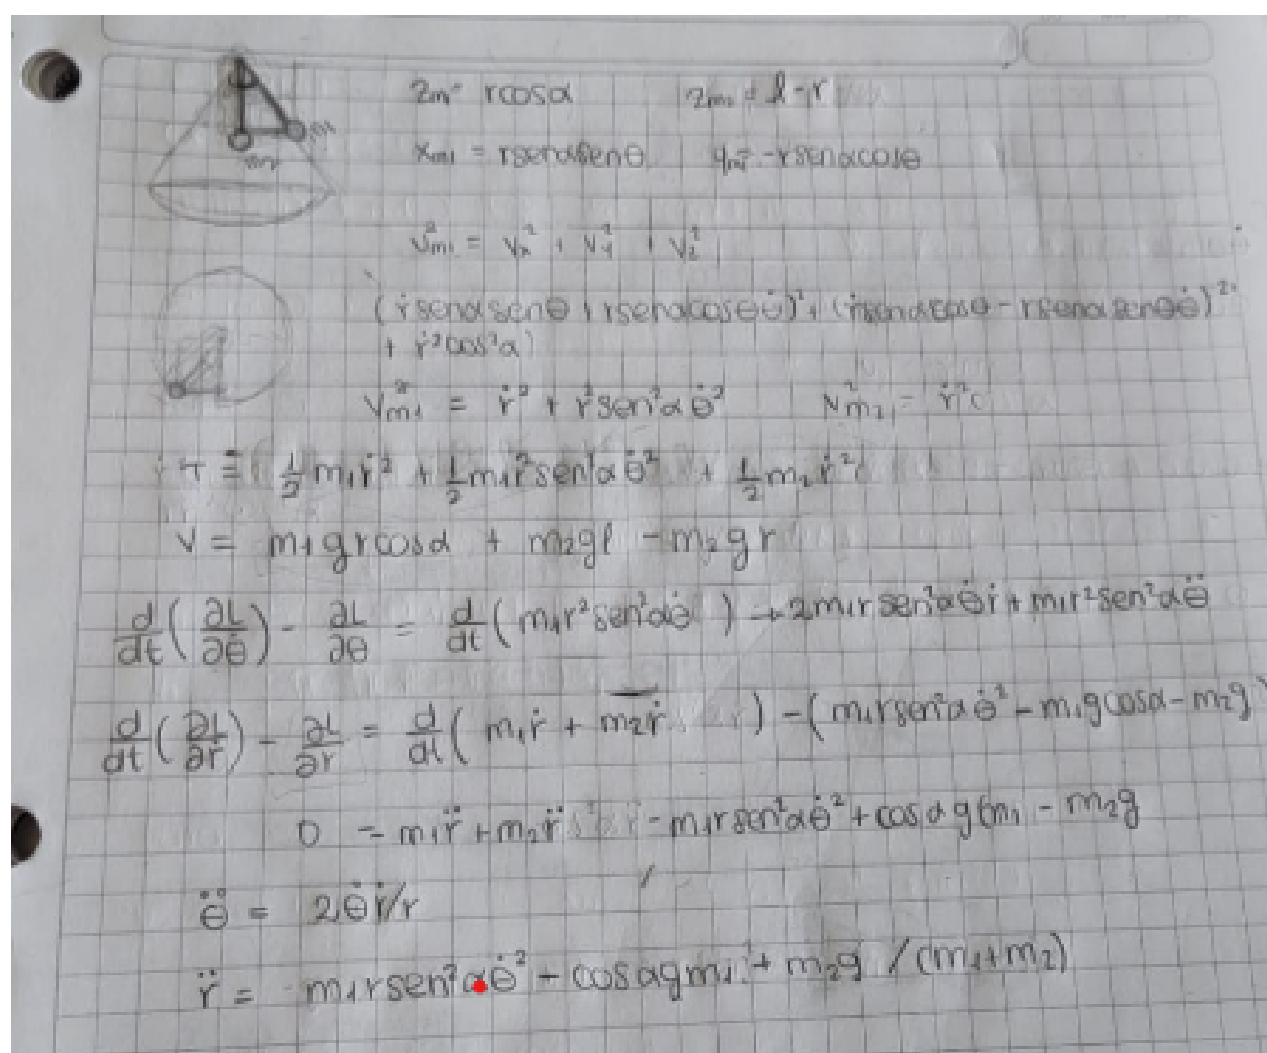 z_m = rcosα    z_m₂ = l - r
x_m₁ = rsenαsenθ    y_m = -rsenαcosθ
m
v²_m₁ = v_x² + v_y² + v_z²
(ṙsenαsenθ + rsenαcosθθ̇)² + (ṙsenαcosθ - rsenαsenθθ̇)²
+ ṙ²cos²α)
v²_m₁ = ṙ² + r²sen²αθ̇²    v²_m₂ = ṙ²
T = ½m₁ṙ² + ½m₁r²sen²αθ̇² + ½m₂ṙ²
V = m₁grcosα + m₂gl - m₂gr
d/dt(∂L/∂θ̇) - ∂L/∂θ = d/dt(m₁r²sen²αθ̇) → 2m₁rsen²αθ̇ṙ + m₁r²sen²αθ̈
d/dt(∂L/∂ṙ) - ∂L/∂r = d/dt(m₁ṙ + m₂ṙ) - (m₁rsen²αθ̇² - m₁gcosα - m₂g)
0 = m₁r̈ + m₂r̈ - m₁rsen²αθ̇² + cosαg(m₁ - m₂g
θ̈ = 2θ̇ṙ/r
r̈ = m₁rsen²αθ̇² - cosαgm₁ + m₂g /(m₁+m₂)